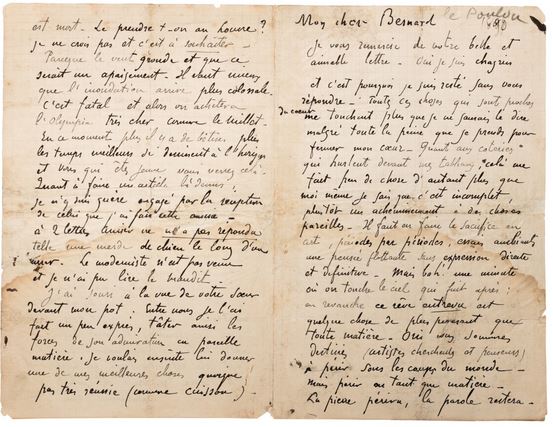 le Pouldu
Mon cher Bernard
Je vous remercie de votre belle et
aimable lettre. Oui je suis chagrin
et c'est pourquoi je suis resté sans vous
répondre - toutes ces choses qui sont proches
du coeur
me touchent plus que je ne saurais le dire
malgré toute la peine que je prends pour
fermer mon cœur - Quant aux coteries
qui hurlent devant mes tableaux cela me
fait peu de chose d'autant plus que
moi même je sais que c'est incomplet,
plutôt un acheminement à des choses
pareilles - Il faut en faire le sacrifice en
art, périodes par périodes, essais ambiants
une pensée flottante sans expression directe
et définitive - Mais bah! une minute
où on touche le ciel qui fuit après;
en revanche ce rêve entrevu est
quelque chose de plus puissant que
toute matière - Oui nous sommes
destinés (artistes chercheurs et penseurs)
à périr sous les coups du monde -
mais périr en tant que matière -
La pierre périra, la parole restera -
est mort - Le prendra t-on au Louvre?
Je ne crois pas et c'est à souhaiter -
Parceque le vent gronde et que ce
serait un apaisement. Il vaut mieux
que l'inondation arrive plus colossale
c'est fatal et alors on achètera
l'Olympia très cher comme le Millet.
En ce moment plus il y a de bêtises plus
les temps meilleurs se dessinent à l'horizon
et vous qui êtes jeune vous verrez cela -
Quant à faire un article là dessus;
je n'y suis guère engagé par la réception
de celui que j'ai fait cette année -
à 2 lettres Aurier ne m'a pas répondu
telle une merde de chien le long d'un
mur. Le moderniste n'est pas venu
et je n'ai pu lire le maudit
J'ai souri à la vue de votre soeur
devant mon pot; Entre nous je l'ai
fait un peu exprès, tâter ainsi les
forces de son admiration en pareille
matière. Je voulais ensuite lui donner
une de mes meilleures choses quoique
pas très réussie (comme cuisson) -